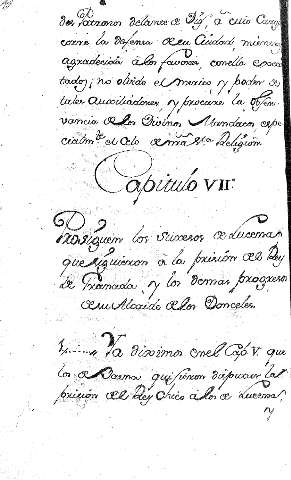 dos Patronos delante de Dios, à cuio Cargo
corre la defensa de su Ciudad, mientras
agradecidos à los favores, con ellos
tados, no olvide el merito, y poder de
tales Auxiliadores, y procure la obser-
vancia de los Divinos Mandatos espe-
cialm.te el Celo de nrã Sta Religion
Capitulo VII:
Prosiguen los Sucesos de Lucena
que siguieron à la prision del Rey
de Granada, y los demas progresos
de su Alcaide de los Donceles.
Ya diximos en el Cap.o V. que
los de Baena quisieron disputar la
prision del Rey Chico à los de Lucena,
y